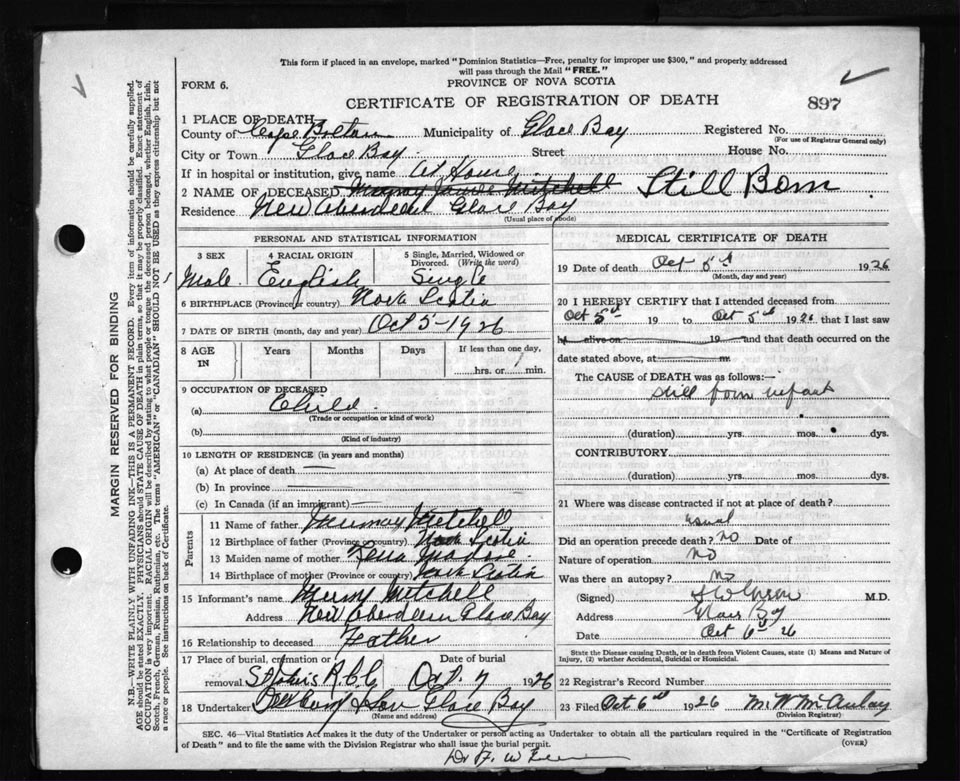 This form if placed in an envelope, marked "Dominion Statistics—Free, penalty for improper use $300," and properly addressed
will pass through the Mail "FREE."
FORM 6.
PROVINCE OF NOVA SCOTIA
CERTIFICATE OF REGISTRATION OF DEATH
897
1 PLACE OF DEATH
County of Cape Breton Municipality of Glace Bay Registered No.
(For use of Registrar General only)
City or Town Glace Bay Street House No.
If in hospital or institution, give name At Home
2 NAME OF DECEASED Murray James Mitchell Still Born
Residence New Aberdeen Glace Bay
(Usual place of abode)
PERSONAL AND STATISTICAL INFORMATION
3 SEX 4 RACIAL ORIGIN 5 Single, Married, Widowed or Divorced. (Write the word)
Male. English Single
6 BIRTHPLACE (Province or country) Nova Scotia
7 DATE OF BIRTH (month, day and year) Oct 5-1926
8 AGE IN Years Months Days If less than one day, hrs. or min.
9 OCCUPATION OF DECEASED
(a) Child
(Trade or occupation or kind of work)
(b)
(Kind of industry)
10 LENGTH OF RESIDENCE (in years and months)
(a) At place of death —
(b) In province —
(c) In Canada (if an immigrant) —
Parents
11 Name of father Murray Mitchell
12 Birthplace of father (Province or country) Nova Scotia
13 Maiden name of mother Lena
14 Birthplace of mother (Province or country) Nova Scotia
15 Informant's name Murry Mitchell
Address New Aberdeen Glace Bay
16 Relationship to deceased Father
17 Place of burial, cremation or removal Date of burial
R.C.C. Oct. 7 1926
18 Undertaker & Son Glace Bay
(Name and address)
MEDICAL CERTIFICATE OF DEATH
19 Date of death Oct 5th 1926
(Month, day and year)
20 I HEREBY CERTIFY that I attended deceased from
Oct 5th 19 to Oct 5th 1926 that I last saw
h alive on 19 and that death occurred on the
date stated above, at m
The CAUSE of DEATH was as follows:—
still born infant
(duration) yrs. mos. dys.
CONTRIBUTORY
(duration) yrs. mos. dys.
21 Where was disease contracted if not at place of death?
usual
Did an operation precede death? No Date of
Nature of operation No
Was there an autopsy? No
(Signed) M.D.
Address Glace Bay
Date Oct 6th 26
State the Disease causing Death, or in death from Violent Causes, state (1) Means and Nature of
Injury, (2) whether Accidental, Suicidal or Homicidal.
22 Registrar's Record Number
23 Filed Oct 6th 1926 M. W McAulay
(Division Registrar)
SEC. 46—Vital Statistics Act makes it the duty of the Undertaker or person acting as Undertaker to obtain all the particulars required in the "Certificate of Registration
of Death" and to file the same with the Division Registrar who shall issue the burial permit. (OVER)
MARGIN RESERVED FOR BINDING
N.B.—WRITE PLAINLY WITH UNFADING INK—THIS IS A PERMANENT RECORD. Every item of information should be carefully supplied.
AGE should be stated EXACTLY. PHYSICIANS should STATE CAUSE OF DEATH in plain terms, so that it may be properly classified. Exact statement of
OCCUPATION is very important. RACIAL ORIGIN will be described by stating to what people or tongue the deceased person belonged, whether English, Irish,
Scotch, French, German, Russian, Ruthenian, etc. The terms "AMERICAN" or "CANADIAN" SHOULD NOT BE USED as they express citizenship but not
a race or people. See instructions on back of Certificate.